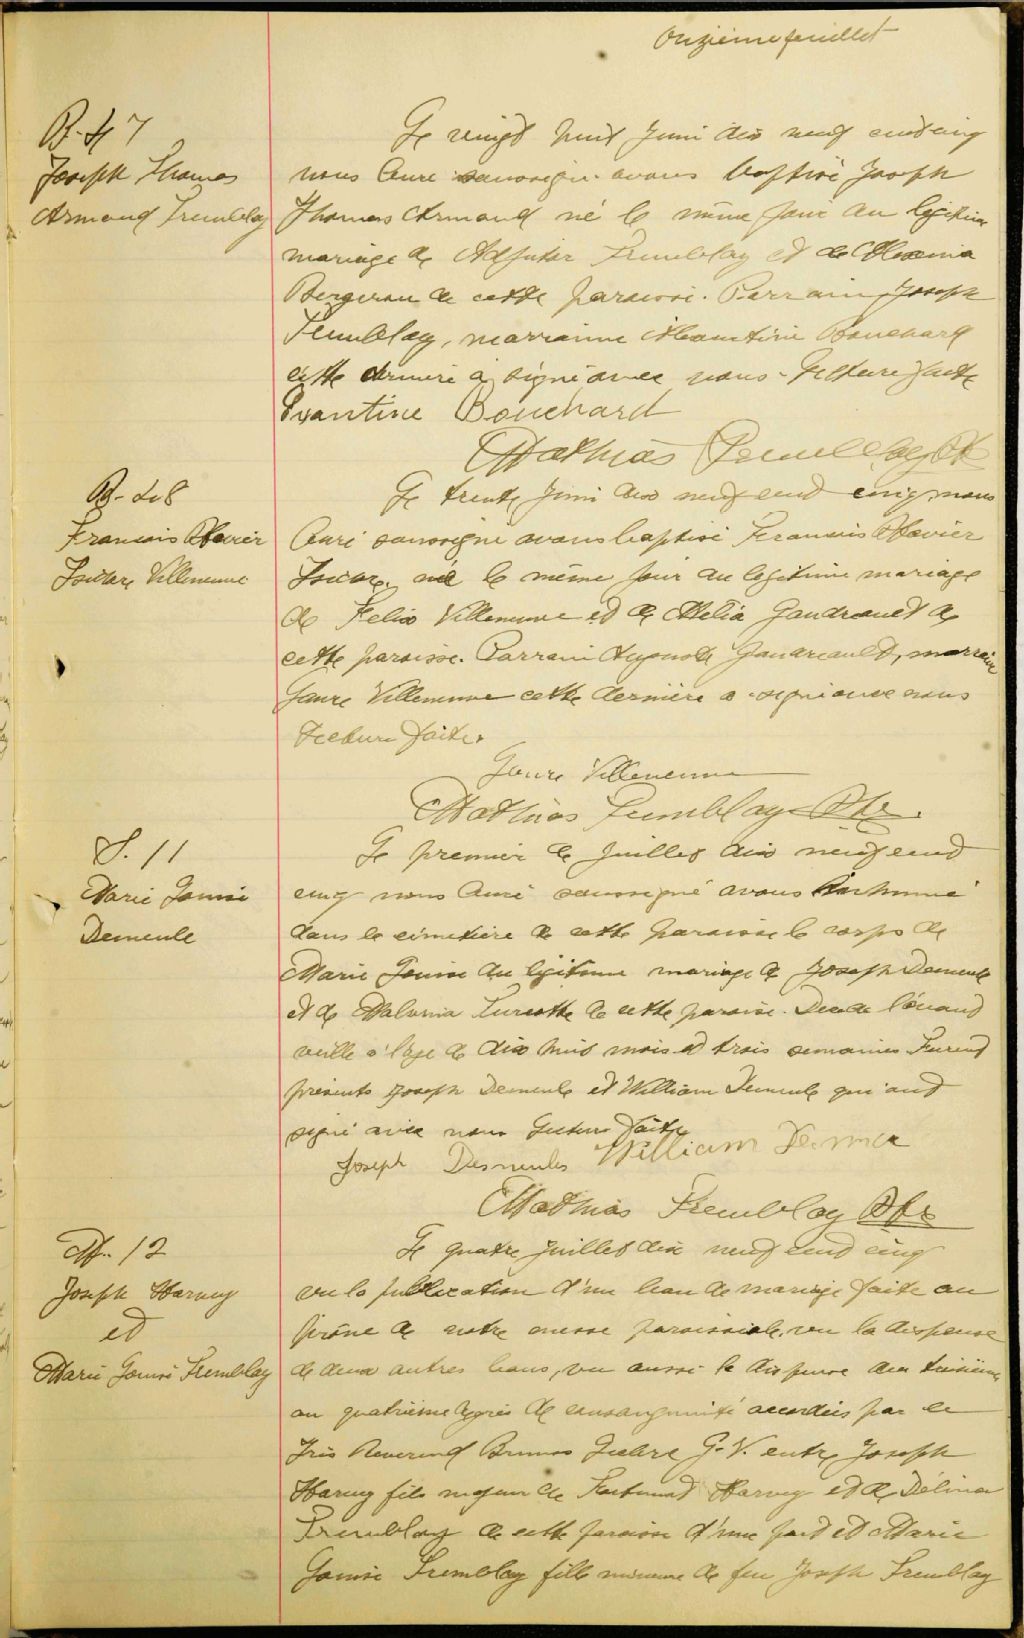 Onzième feuillet
B. 47
Joseph Thomas
Armand Tremblay
Le vingt huit juin dix neuf cent cinq
nous Curé soussigné avons baptisé Joseph
Thomas Armand né le même jour du légitime
mariage de Adjutor Tremblay et de
Bergeron de cette paroisse. Parrain Joseph
Tremblay, marraine Bouchard
cette dernière a signé avec nous. Lecture faite
Evantine Bouchard
Mathias Tremblay Ptr
B. 48
Francois Xavier
Isidore Villeneuve
Le trente juin dix neuf cent cinq nous
Curé soussigné avons baptisé Francois Xavier
Isidore, né le même jour du légitime mariage
de Felix Villeneuve et de Gaudreault de
cette paroisse. Parrain Gaudreault, marraine
Laure Villeneuve cette dernière a signé avec nous
Lecture faite.
Laure Villeneuve
Mathias Tremblay Ptr.
S. 11
Marie Louise
Demeule
Le premier de juillet dix neuf cent
cinq nous Curé soussigné avons inhumé
dans le cimetière de cette paroisse le corps de
Marie Louise du légitime mariage de Joseph Demeule
et de Malvina Turcotte de cette paroisse. l'avant
veille à l'age de dix huit mois et trois semaines Furent
présents Joseph Demeule et William Demeule qui ont
signé avec nous Lecture faite
Joseph Desmeules William
Mathias Tremblay Ptr
M. 12
Joseph Harvey
et
Marie Louise Tremblay
Le quatre juillet dix neuf cent cinq
vu la publication d'un ban de mariage faite au
prône de notre messe paroissiale, vu la dispense
de deux autres bans, vu aussi la dispense du troisième
au quatrième degrés de consanguinité accordées par le
Très Reverend G. V. entre Joseph
Harvey fils majeur de Harvey et de Délina
Tremblay de cette paroisse d'une part et Marie
Louise Tremblay fille mineure de feu Joseph Tremblay